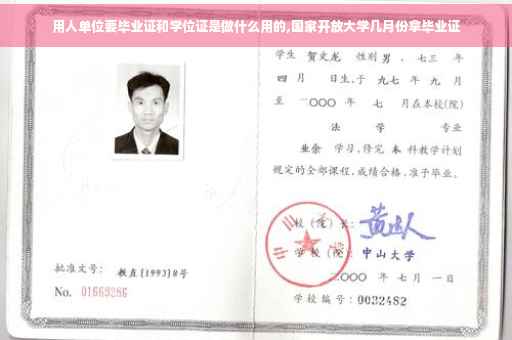 用人单位要毕业证和学位证是做什么用的,国家开放大学几月份拿毕业证
学生 贺文龙 性别 男 、七三 年
四 月 日生,于 九七 年 九 月
至 二〇〇〇 年 七 月在本校(院)
法 学 专业
业余 学习,修完 本 科教学计划
规定的全部课程,成绩合格,准予毕业。
校(院)长:
学校(院): 中山大学
二〇〇〇 年 七 月 一 日
学校编号: 0032482
批准文号: 教直[1993]8号
No. 01669286